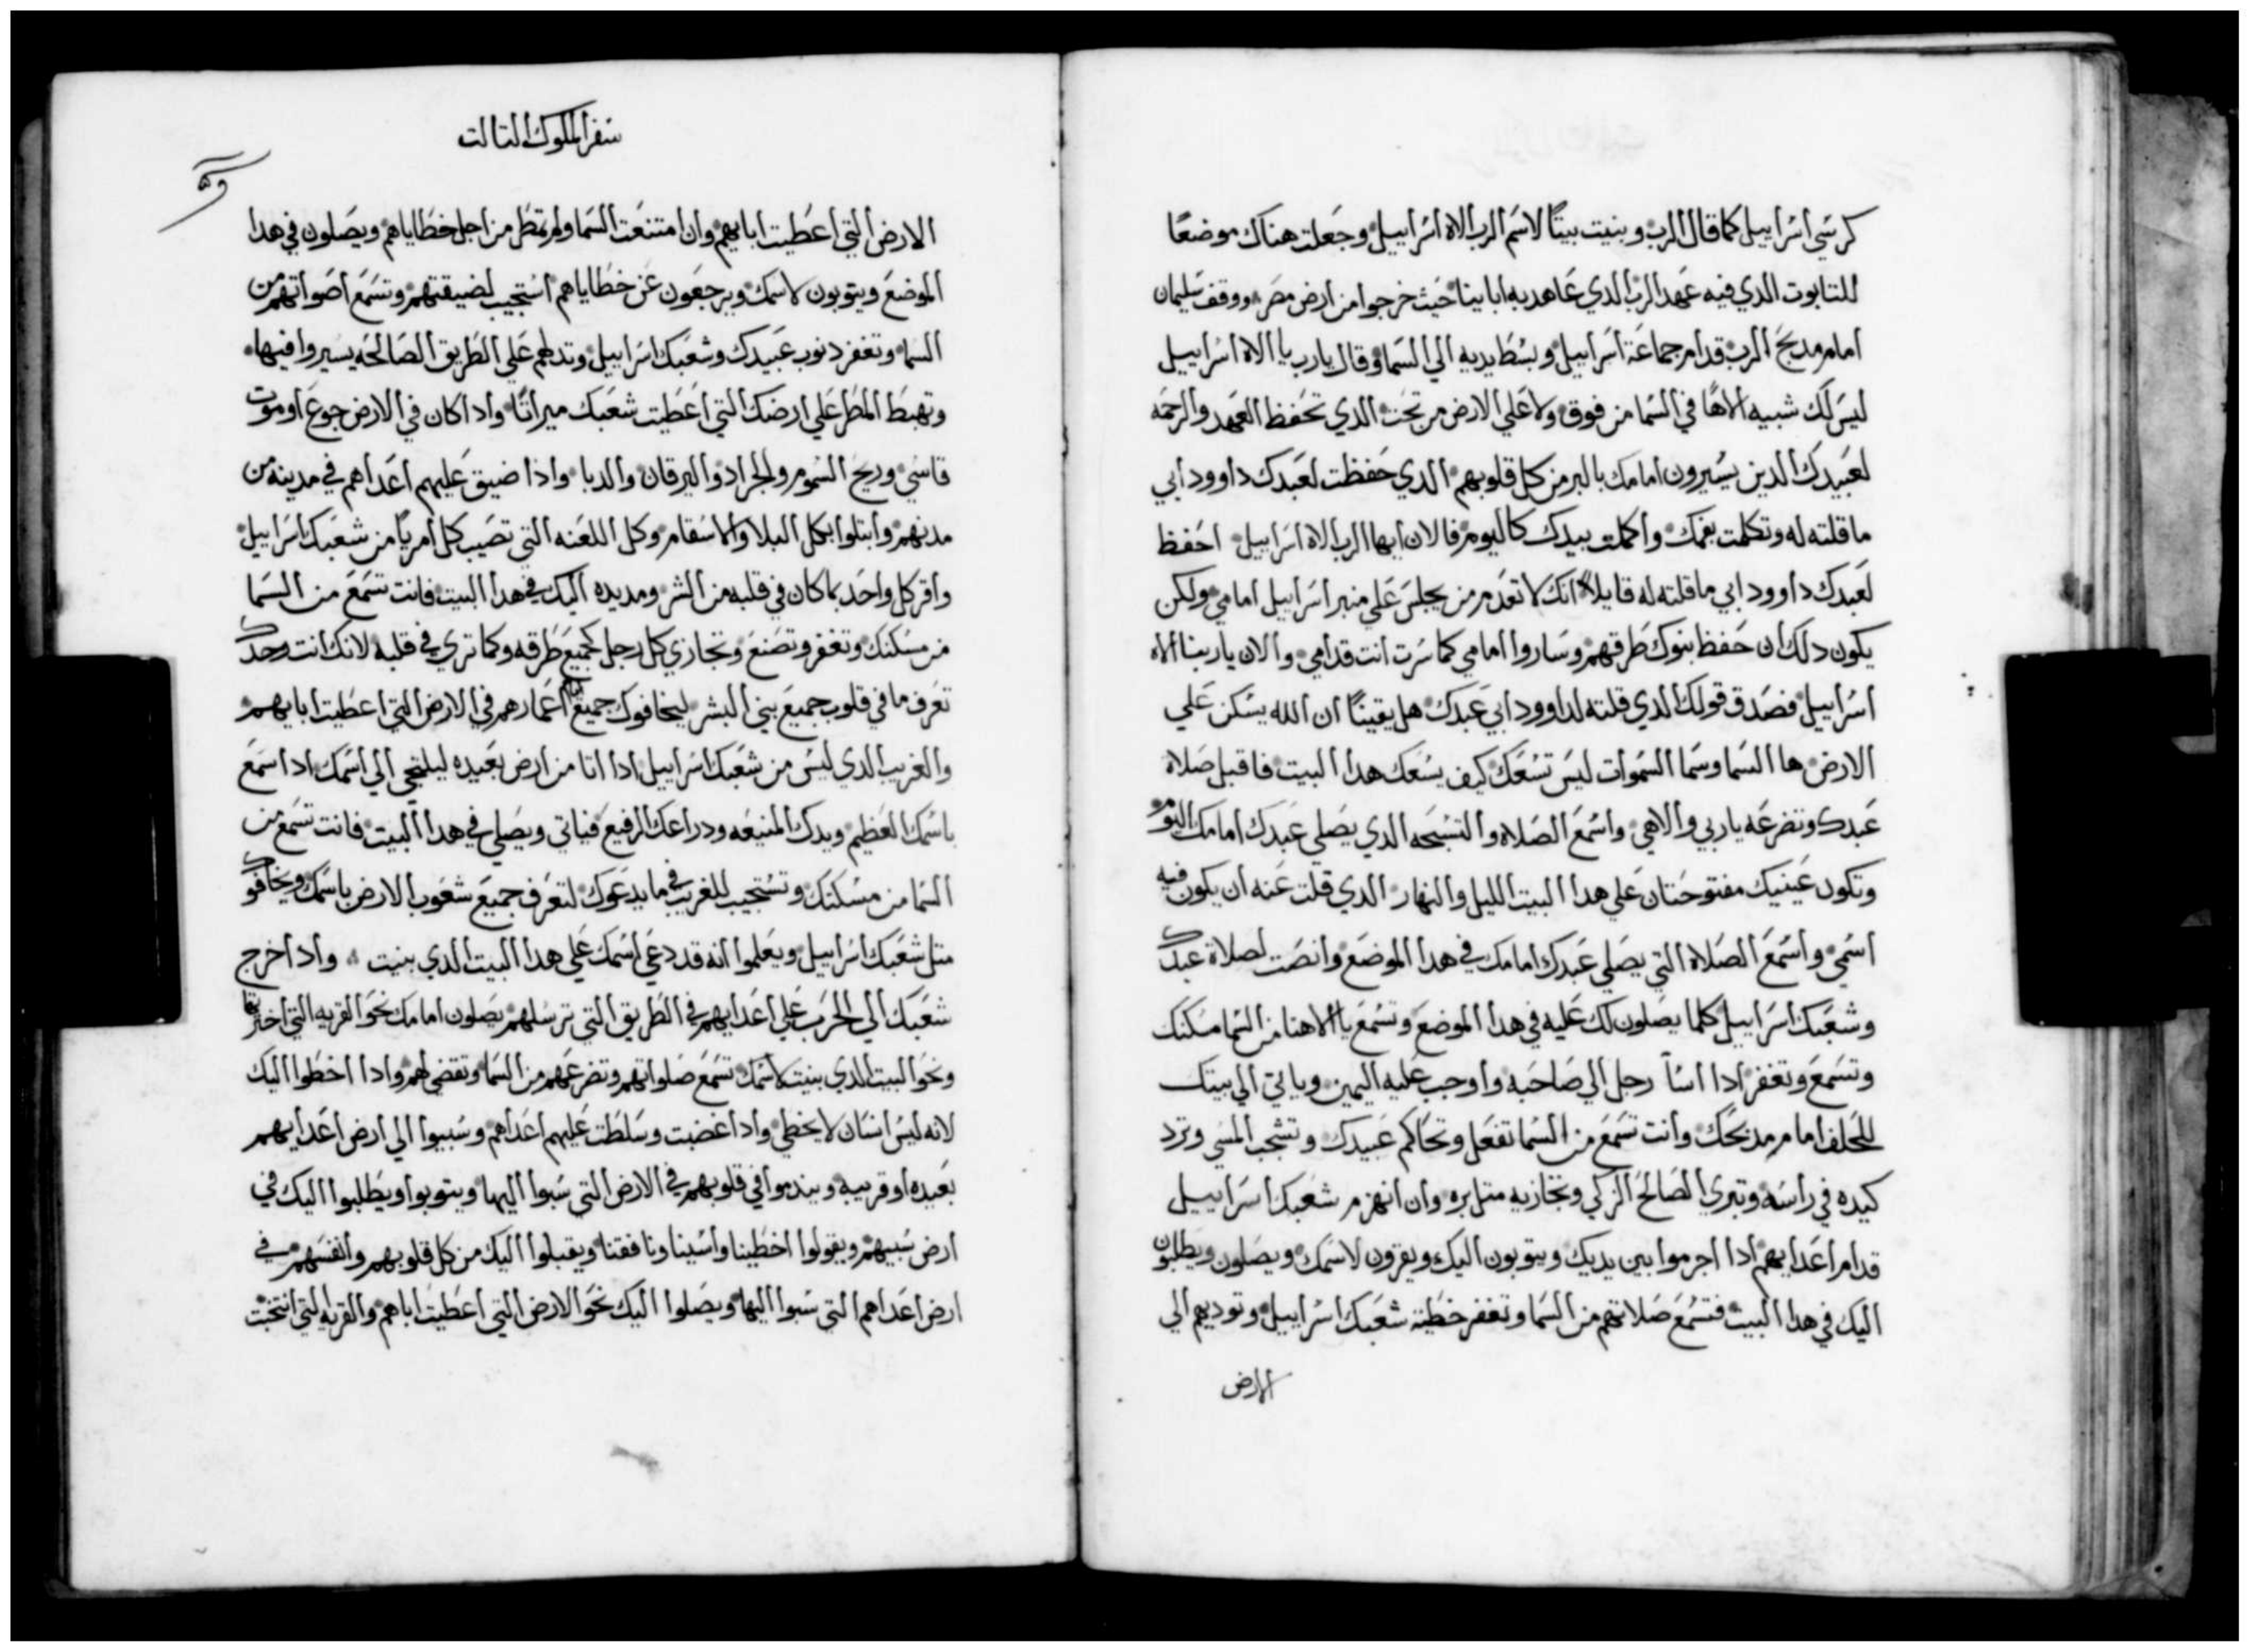 كرسي اسراييل كما قال الرب وبنيت بيتًا لاسم الرب الاه اسراييل وجعلت هناك موضعًا
للتابوت الدي فيه عهد الرب الدي عاهد به ابايينا حيث خرجوا من ارض مصر ووقف سليمان
امام مدبح الرب قدام جماعة اسراييل وبسط يديه الي السما وقال يارب يا الاه اسراييل
ليس لك شبيه الاهًا في السما من فوق ولا علي الارض من تحت الدي تحفظ العهد والرحمه
لعبيدك الدين يسيرون امامك بالبر من كل قلوبهم الدي حفظت لعبدك داوود ابي
ما قلته له وتكلمت بفمك واكملت بيدك كاليوم فالان ايها الرب الاه اسراييل احفظ
لعبدك داوود ابي ما قلته له قايلاً انك لا تعدم من يجلس علي منبر اسراييل امامي ولكن
يكون دلك ان حفظ بنوك طرقهم وساروا امامي كما سرت انت قدامي والان ياربنا الاه
اسراييل فصدق قولك الدي قلته لداوود ابي عبدك هل يقينًا ان الله يسكن علي
الارض ها السما وسما السموات ليس تسعك كيف يسعك هدا البيت فاقبل صلاة
عبدك وتضرعه ياربي والاهي واسمع الصلاه والتسبحه الدي يصلي عبدك امامك اليوم
وتكون عينيك مفتوحتان علي هدا البيت الليل والنهار الدي قلت عنه ان يكون فيه
اسمي واسمع الصلاة التي يصلي عبدك امامك في هدا الموضع وانصت لصلاة عبدك
وشعبك اسراييل كلما يصلون لك عليه في هدا الموضع وتسمع يا الاهنا من السما مسكنك
وتسمع وتغفر ادا اسأ رجل الي صاحبه واوجب عليه اليمين وياتي الي بيتك
للحلف امام مدبحك وانت تسمع من السما تفعل وتحاكم عبيدك وتشجب المسي وترد
كيده في راسه وتبري الصالح الزكي وتجازيه متل بره وان انهزم شعبك اسراييل
قدام اعدايهم ادا اجرموا بين يديك ويتوبون اليك ويقرون لاسمك ويصلون ويطلبون
اليك في هدا البيت فتسمع صلاتهم من السما وتغفر خطية شعبك اسراييل وتوديهم الي
الارض
سفر الملوك التالت
الارض التي اعطيت ابايهم وان امتنعت السما ولم تمطر من اجل خطاياهم ويصلون في هدا
الموضع ويتوبون لاسمك ويرجعون عن خطاياهم استجيب لضيقتهم وتسمع اصواتهم من
السما وتغفر دنوب عبيدك وشعبك اسراييل وتدلهم علي الطريق الصالحه يسيروا فيها
وتهبط المطر علي ارضك التي اعطيت شعبك ميراتًا وادا كان في الارض جوع او موت
قاسي وريح السموم والجراد واليرقان والدبا واذا ضيق عليهم اعداهم في مدينه من
مدنهم وابتلوا بكل البلا والاسقام وكل اللعنه التي تصيب كل امريًا من شعبك اسراييل
واقر كل واحد بما كان في قلبه من الشر ومد يده اليك في هدا البيت فانت تسمع من السما
من مسكنك وتغفر وتصنع وتجازي كل رجل كجميع طرقه وكما تري في قلبه لانك انت وحدك
تعرف ما في قلوب جميع بني البشر ليخافوك جميع ايام اعمارهم في الارض التي اعطيت ابايهم
والغريب الدي ليس من شعبك اسراييل ادا اتا من ارض بعيده ليلتجي الي اسمك ادا سمع
باسمك العظيم ويدك المنيعه ودراعك الرفيع فياتي ويصلي في هدا البيت فانت تسمع من
السما من مسكنك وتستجيب للغريب في ما يدعوك لتعرف جميع شعوب الارض باسمك ويخافوك
متل شعبك اسراييل ويعلموا انه قد دعي اسمك علي هدا البيت الدي بنيت وادا خرج
شعبك الي الحرب علي اعدايهم في الطريق التي ترسلهم يصلون امامك نحو القريه التي اخترتها
ونحو البيت الدي بنيت لاسمك تسمع صلواتهم وتضرعهم من السما وتقضي لهم وادا اخطوا اليك
لانه ليس انسان لا يخطي وادا غضبت وسلطت عليهم اعداهم وسبيوا الي ارض اعدايهم
بعيده او قريبه ويندموا في قلوبهم في الارض التي سبوا اليها ويتوبوا ويطلبوا اليك في
ارض سبيهم ويقولوا اخطينا واسينا ونافقنا ويقبلوا اليك من كل قلوبهم وانفسهم في
ارض اعداهم التي سبوا اليها ويصلوا اليك نحو الارض التي اعطيت اباهم والقريه التي انتخبت